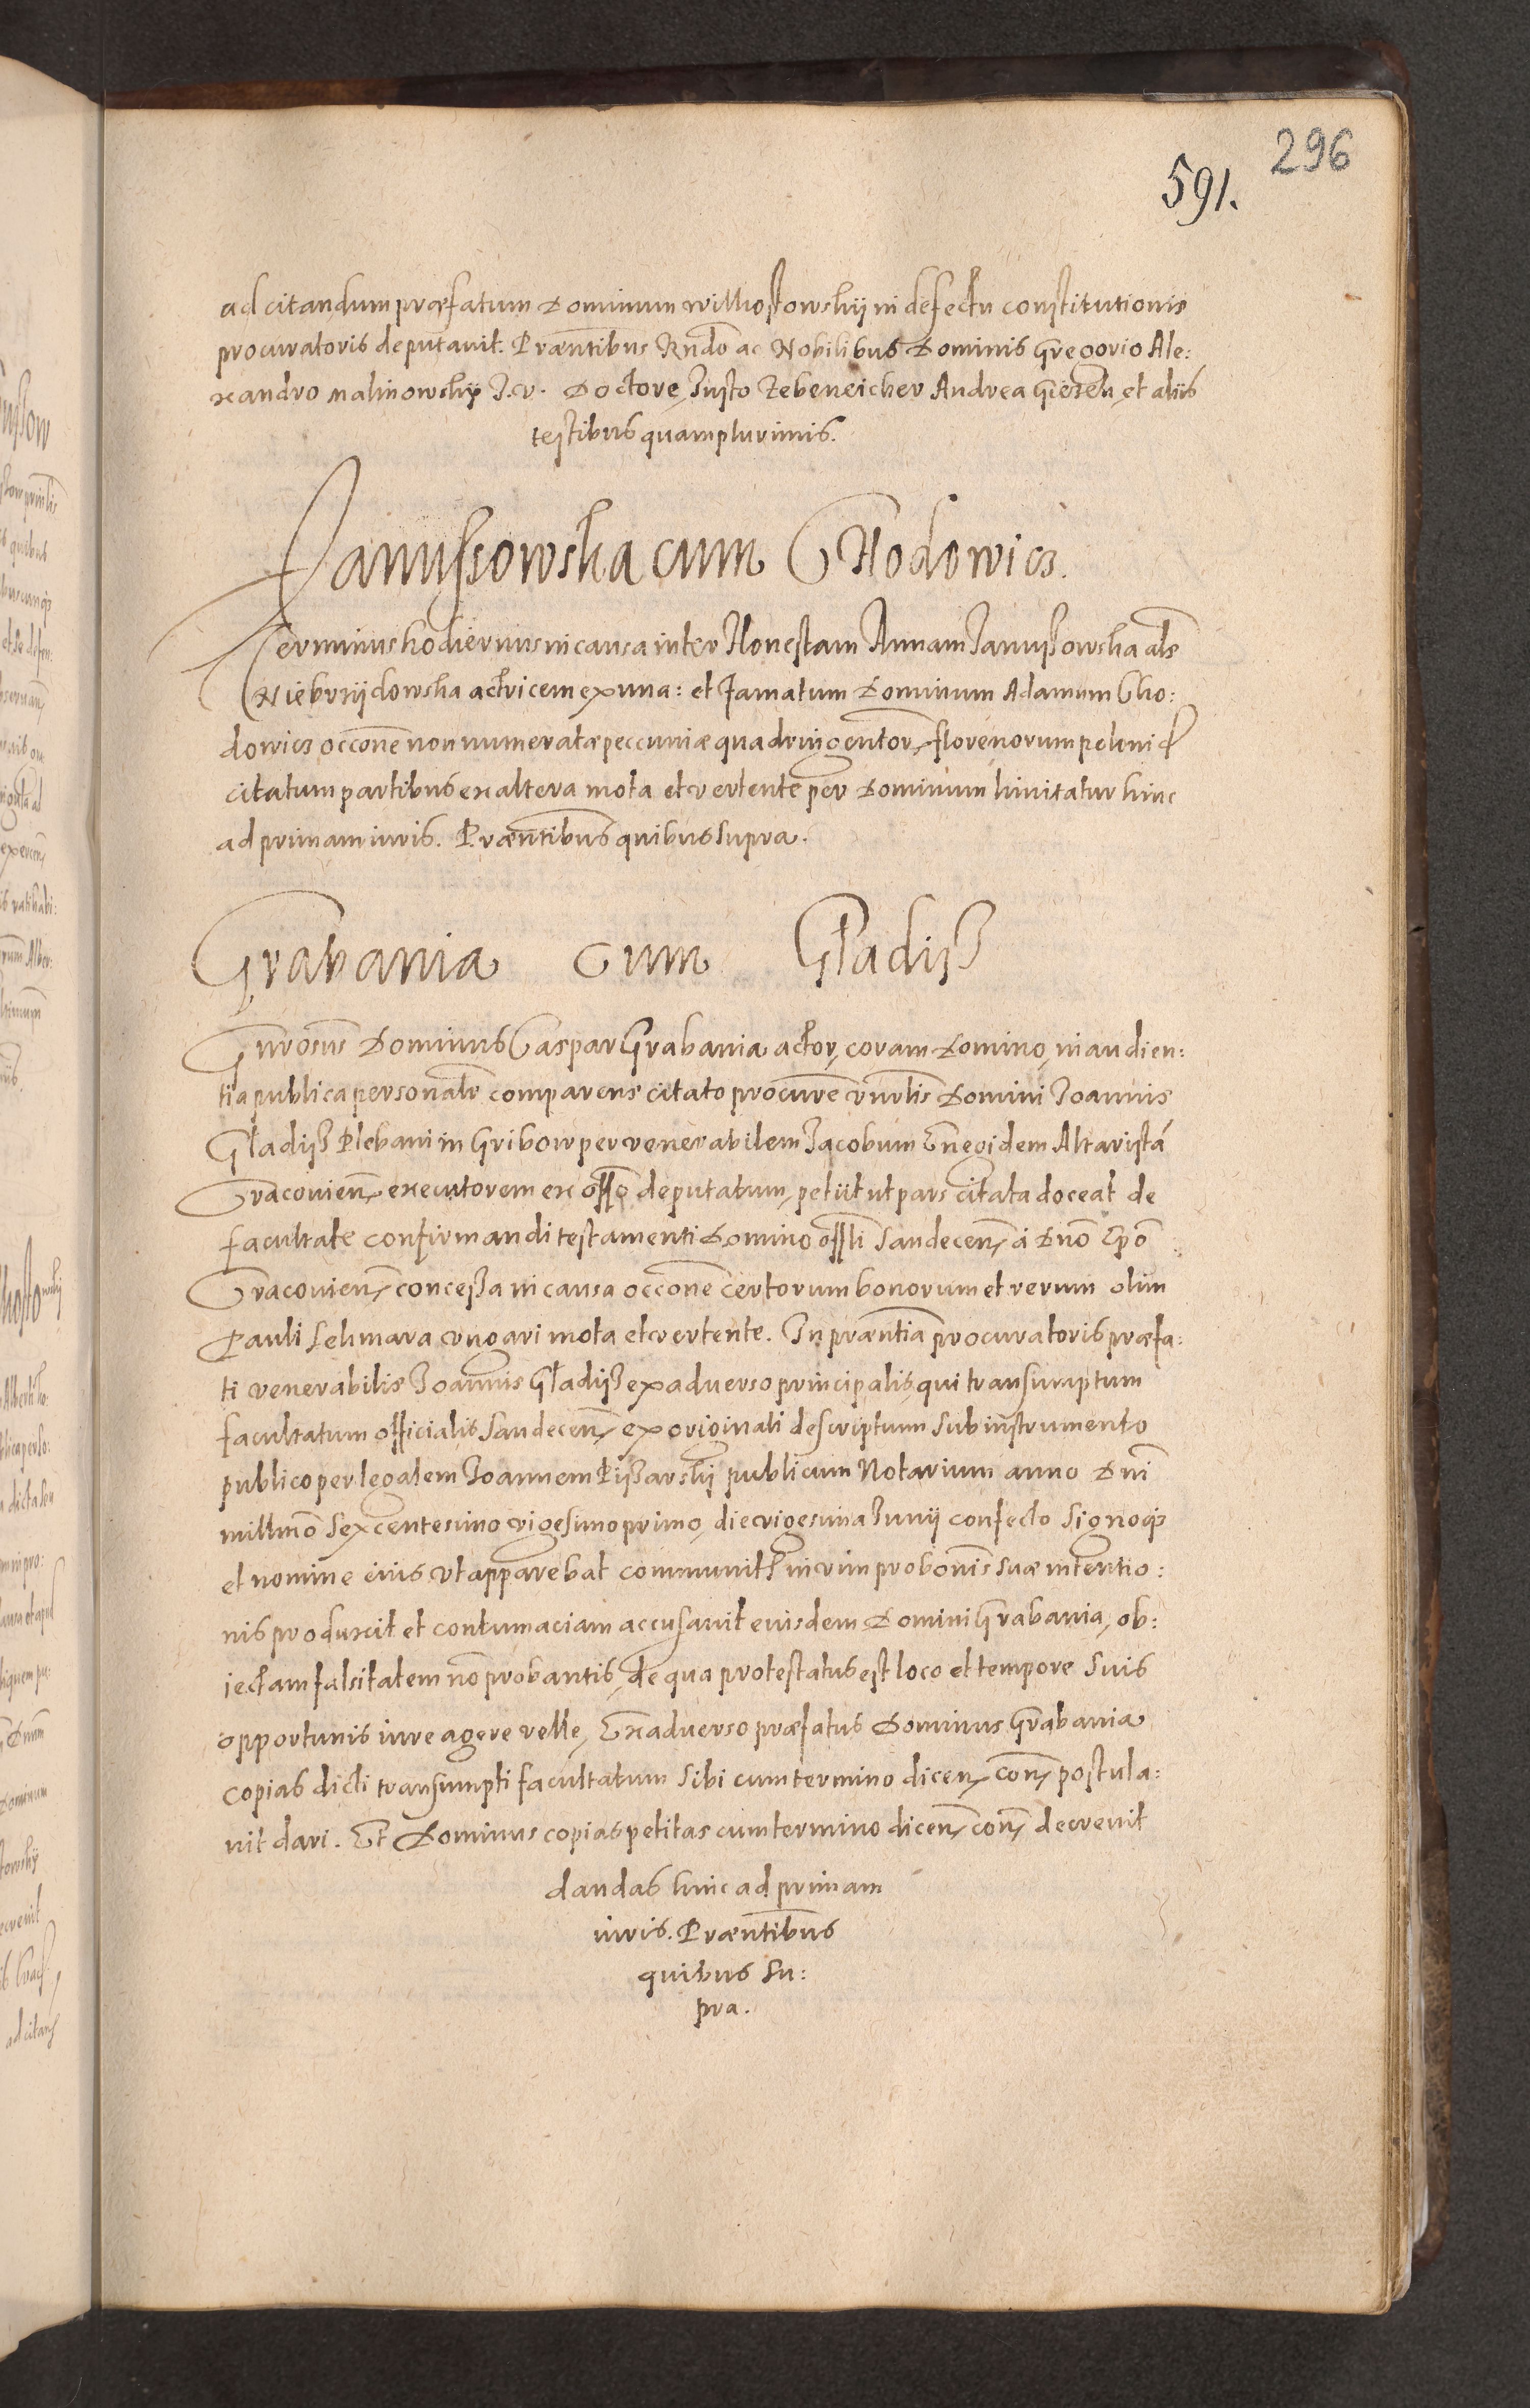 296
591.
ad citandum præfatum Dominum Wilkostowskij in defectu constitutionis
procuratoris deputavit. Præntibus Rndo ac Nobilibus Dominis Gregorio Ale:
xandro Malinowsky J.V. Doctore, Justo Zebeneicher Andrea et aliis
testibus quamplurimis.
Janussowska cum Chodowicz.
Terminus hodiernus in causa inter Honestam Annam Janussowska als
Niebrzijdowska actricem ex una: et famatum Dominum Adamum Cho:
dowicz occone non numeratæ peccuniæ quadringentor, florenorum poloni
citatum partibus ex altera mota et vertente per Dominum limitatur hinc
ad primam iuris. Præntibus quibus supra.
Grabania cum Gładijsz
Gnrosus Dominus Caspar Grabania actor, coram Domino, in audien:
tia publica personalr comparens citato procure vnrlis Domini Joannis
Gładijsz Plebani in Gribow per venerabilem Jacobum Altaristá
Cracouien, executorem ex offo deputatum, petiit ut pars citata doceat de
facultate confirmandi testamenti Domino offli Sandecen, á Dno Epo
Cracouien, concessa in causa occone certorum bonorum et rerum olim
Pauli Lehmara vngari mota et vertente. In præntia procuratoris præfa:
ti venerabilis Joannis Gładijsz ex aduerso principalis, qui transumptum
facultatum officialis Sandecen, ex originali descriptum sub instrumento
publico per legalem Joannem Pijsarskij publicum Notarium anno Dni
millmo sexcentesimo vigesimo primo, die vigesima Junij confecto signoqs
et nomine eius vt apparebat communit in vim probonis suæ intentio:
nis produxit et contumaciam accusauit eiusdem Domini Grabania, ob:
iectam falsitatem no probantis, de qua protestatus est loco et tempore suis
opportunis iure agere velle, Ex aduerso præfatus Dominus Grabania
copias dicti transumpti facultatum sibi cum termino dicen, con, postula:
uit dari. Et Dominus copias petitas cum termino dicen, con, decreuit
dandas hinc ad primam
iuris. Præntibus
quibus su:
pra.